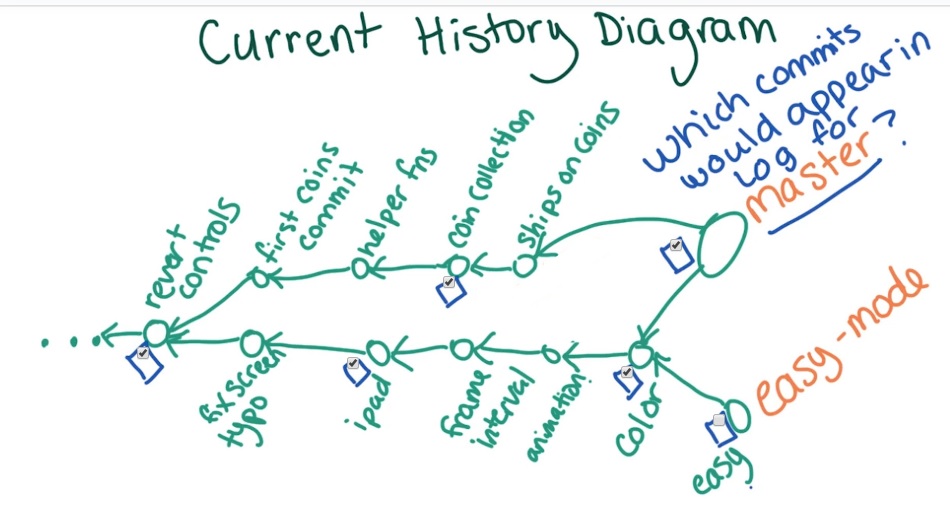 Current History Diagram
Which commits
would appear in
log for
master?
revert
controls
first coins
commit
helper fns
coin collection
ships on coins
easy-mode
fix screen
typo
ipad
frame
interval
animation
color
easy